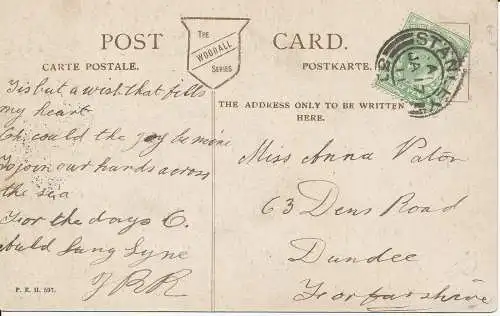 POST CARD.
THE
WODHALL
SERIES
CARTE POSTALE.
POSTKARTE
STANLEY
THE ADDRESS ONLY TO BE WRITTEN
HERE.
Tis but a wish that fills
my heart
Oh could the joy be mine
To join our hands across
the sea
For the days O.
Auld Lang Syne
JRR
P. E. H. 597.
Miss Anna Paton
63 Dens Road
Dundee
Forfarshire